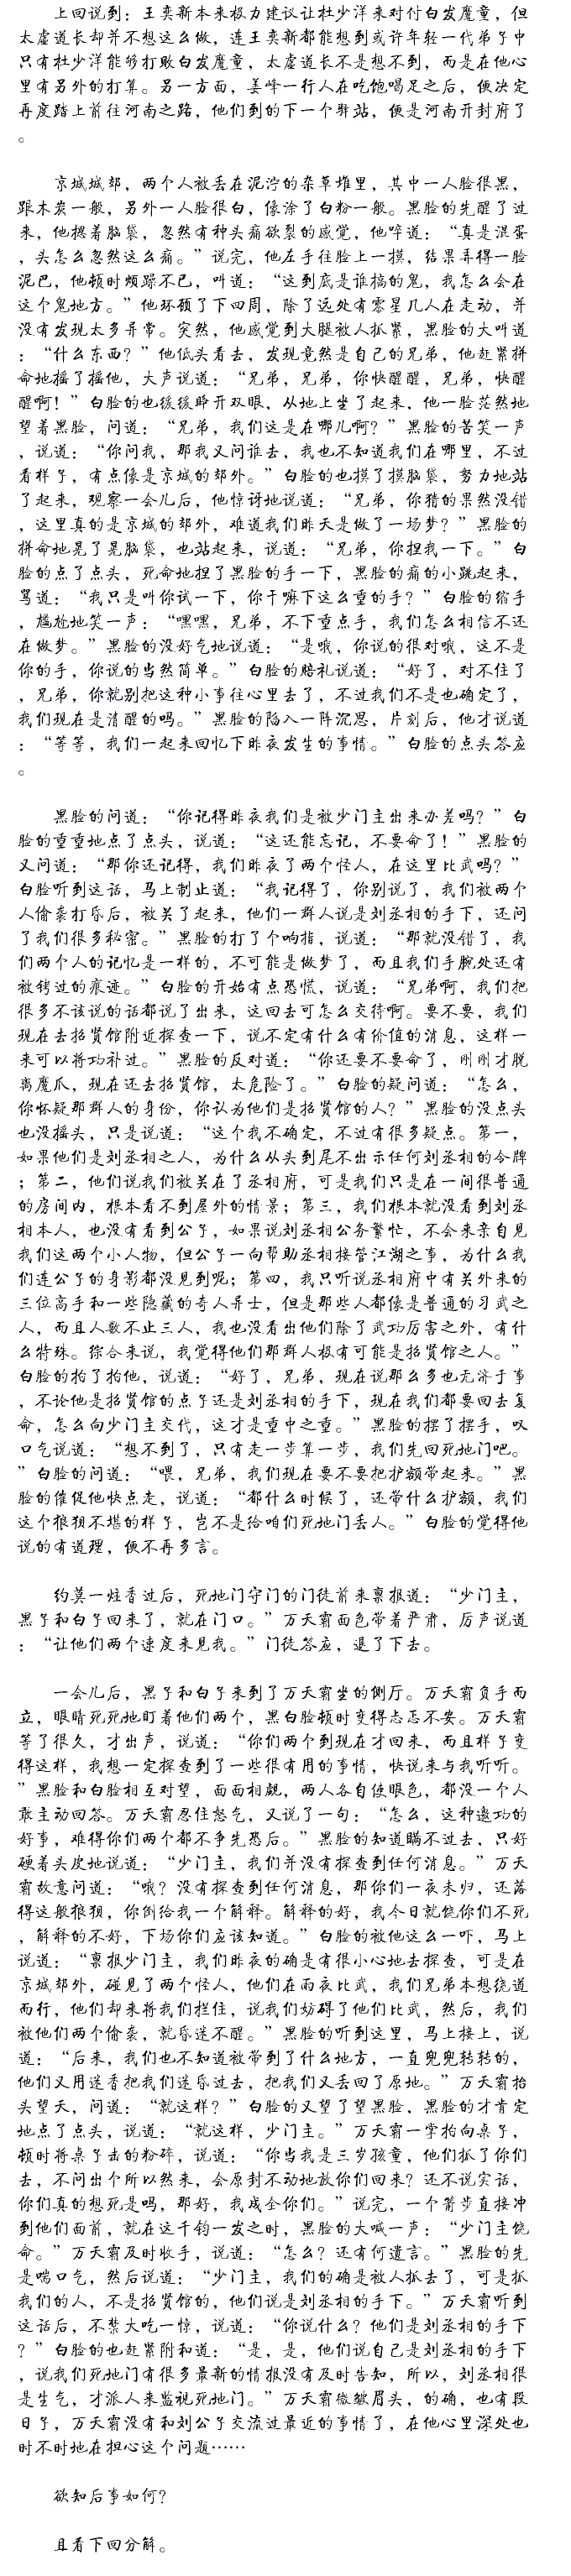 上回说到：王奕新本来极力建议让杜少洋来对付白发魔童，但
太虚道长却并不想这么做，连王奕新都能想到或许年轻一代弟子中
只有杜少洋能够打败白发魔童，太虚道长不是想不到，而是在他心
里有另外的打算。另一方面，姜峰一行人在吃饱喝足之后，便决定
再度踏上前往河南之路，他们到的下一个驿站，便是河南开封府了
。
京城城郊，两个人被丢在泥泞的杂草堆里，其中一人脸很黑，
跟木炭一般，另外一人脸很白，像涂了白粉一般。黑脸的先醒了过
来，他摁着脑袋，忽然有种头痛欲裂的感觉，他啐道：“真是混蛋
，头怎么忽然这么痛。”说完，他左手往脸上一摸，结果弄得一脸
泥巴，他顿时烦躁不已，叫道：“这到底是谁搞的鬼，我怎么会在
这个鬼地方。”他环顾了下四周，除了远处有零星几人在走动，并
没有发现太多异常。突然，他感觉到大腿被人抓紧，黑脸的大叫道
：“什么东西？”他低头看去，发现竟然是自己的兄弟，他赶紧拼
命地摇了摇他，大声说道：“兄弟，兄弟，你快醒醒，兄弟，快醒
醒啊！”白脸的也缓缓睁开双眼，从地上坐了起来，他一脸茫然地
望着黑脸，问道：“兄弟，我们这是在哪儿啊？”黑脸的苦笑一声
，说道：“你问我，那我又问谁去，我也不知道我们在哪里，不过
看样子，有点像是京城的郊外。”白脸的也摸了摸脑袋，努力地站
了起来，观察一会儿后，他惊讶地说道：“兄弟，你猜的果然没错
，这里真的是京城的郊外，难道我们昨天是做了一场梦？”黑脸的
拼命地晃了晃脑袋，也站起来，说道：“兄弟，你捏我一下。”白
脸的点了点头，死命地捏了黑脸的手一下，黑脸的痛的小跳起来，
骂道：“我只是叫你试一下，你干嘛下这么重的手？”白脸的缩手
，尴尬地笑一声：“嘿嘿，兄弟，不下重点手，我们怎么相信不还
在做梦。”黑脸的没好气地说道：“是哦，你说的很对哦，这不是
你的手，你说的当然简单。”白脸的赔礼说道：“好了，对不住了
，兄弟，你就别把这种小事往心里去了，不过我们不是也确定了，
我们现在是清醒的吗。”黑脸的陷入一阵沉思，片刻后，他才说道
：“等等，我们一起来回忆下昨夜发生的事情。”白脸的点头答应
。
黑脸的问道：“你记得昨夜我们是被少门主出来办差吗？”白
脸的重重地点了点头，说道：“这还能忘记，不要命了！”黑脸的
又问道：“那你还记得，我们昨夜了两个怪人，在这里比武吗？”
白脸听到这话，马上制止道：“我记得了，你别说了，我们被两个
人偷袭打昏后，被关了起来，他们一群人说是刘丞相的手下，还问
了我们很多秘密。”黑脸的打了个响指，说道：“那就没错了，我
们两个人的记忆是一样的，不可能是做梦了，而且我们手腕处还有
被铐过的痕迹。”白脸的开始有点恐慌，说道：“兄弟啊，我们把
很多不该说的话都说了出来，这回去可怎么交待啊。要不要，我们
现在去招贤馆附近探查一下，说不定有什么有价值的消息，这样一
来可以将功补过。”黑脸的反对道：“你还要不要命了，刚刚才脱
离魔爪，现在还去招贤馆，太危险了。”白脸的疑问道：“怎么，
你怀疑那群人的身份，你认为他们是招贤馆的人？”黑脸的没点头
也没摇头，只是说道：“这个我不确定，不过有很多疑点。第一，
如果他们是刘丞相之人，为什么从头到尾不出示任何刘丞相的令牌
；第二，他们说我们被关在了丞相府，可是我们只是在一间很普通
的房间内，根本看不到屋外的情景；第三，我们根本就没看到刘丞
相本人，也没有看到公子，如果说刘丞相公务繁忙，不会来亲自见
我们这两个小人物，但公子一向帮助丞相接管江湖之事，为什么我
们连公子的身影都没见到呢；第四，我只听说丞相府中有关外来的
三位高手和一些隐藏的奇人异士，但是那些人都像是普通的习武之
人，而且人数不止三人，我也没看出他们除了武功厉害之外，有什
么特殊。综合来说，我觉得他们那群人极有可能是招贤馆之人。”
白脸的拍了拍他，说道：“好了，兄弟，现在说那么多也无济于事
，不论他是招贤馆的点子还是刘丞相的手下，现在我们都要回去复
命，怎么向少门主交代，这才是重中之重。”黑脸的摆了摆手，叹
口气说道：“想不到了，只有走一步算一步，我们先回死地门吧。
”白脸的问道：“喂，兄弟，我们现在要不要把护额带起来。”黑
脸的催促他快点走，说道：“都什么时候了，还带什么护额，我们
这个狼狈不堪的样子，岂不是给咱们死地门丢人。”白脸的觉得他
说的有道理，便不再多言。
约莫一炷香过后，死地门守门的门徒前来禀报道：“少门主，
黑子和白子回来了，就在门口。”万天霸面色带着严肃，厉声说道
：“让他们两个速度来见我。”门徒答应，退了下去。
一会儿后，黑子和白子来到了万天霸坐的侧厅。万天霸负手而
立，眼睛死死地盯着他们两个，黑白脸顿时变得忐忑不安。万天霸
等了很久，才出声，说道：“你们两个到现在才回来，而且样子变
得这样，我想一定探查到了一些很有用的事情，快说来与我听听。
”黑脸和白脸相互对望，面面相觑，两人各自使眼色，都没一个人
敢主动回答。万天霸忍住怒气，又说了一句：“怎么，这种邀功的
好事，难得你们两个都不争先恐后。”黑脸的知道瞒不过去，只好
硬着头皮地说道：“少门主，我们并没有探查到任何消息。”万天
霸故意问道：“哦？没有探查到任何消息，那你们一夜未归，还落
得这般狼狈，你倒给我一个解释。解释的好，我今日就饶你们不死
，解释的不好，下场你们应该知道。”白脸的被他这么一吓，马上
说道：“禀报少门主，我们昨夜的确是有很小心地去探查，可是在
京城郊外，碰见了两个怪人，他们在雨夜比武，我们兄弟本想绕道
而行，他们却来将我们拦住，说我们妨碍了他们比武，然后，我们
被他们两个偷袭，就昏迷不醒。”黑脸的听到这里，马上接上，说
道：“后来，我们也不知道被带到了什么地方，一直兜兜转转的，
他们又用迷香把我们迷昏过去，把我们又丢回了原地。”万天霸抬
头望天，问道：“就这样？”白脸的又望了望黑脸，黑脸的才肯定
地点了点头，说道：“就这样，少门主。”万天霸一掌拍向桌子，
顿时将桌子击的粉碎，说道：“你当我是三岁孩童，他们抓了你们
去，不问出个所以然来，会原封不动地放你们回来？还不说实话，
你们真的想死是吗，那好，我成全你们。”说完，一个箭步直接冲
到他们面前，就在这千钧一发之时，黑脸的大喊一声：“少门主饶
命。”万天霸及时收手，说道：“怎么？还有何遗言。”黑脸的先
是喘口气，然后说道：“少门主，我们的确是被人抓去了，可是抓
我们的人，不是招贤馆的，他们说是刘丞相的手下。”万天霸听到
这话后，不禁大吃一惊，说道：“你说什么？他们是刘丞相的手下
？”白脸的也赶紧附和道：“是，是，他们说自己是刘丞相的手下
，说我们死地门有很多最新的情报没有及时告知，所以，刘丞相很
是生气，才派人来监视死地门。”万天霸微皱眉头，的确，也有段
日子，万天霸没有和刘公子交流过最近的事情了，在他心里深处也
时不时地在担心这个问题……
欲知后事如何？
且看下回分解。